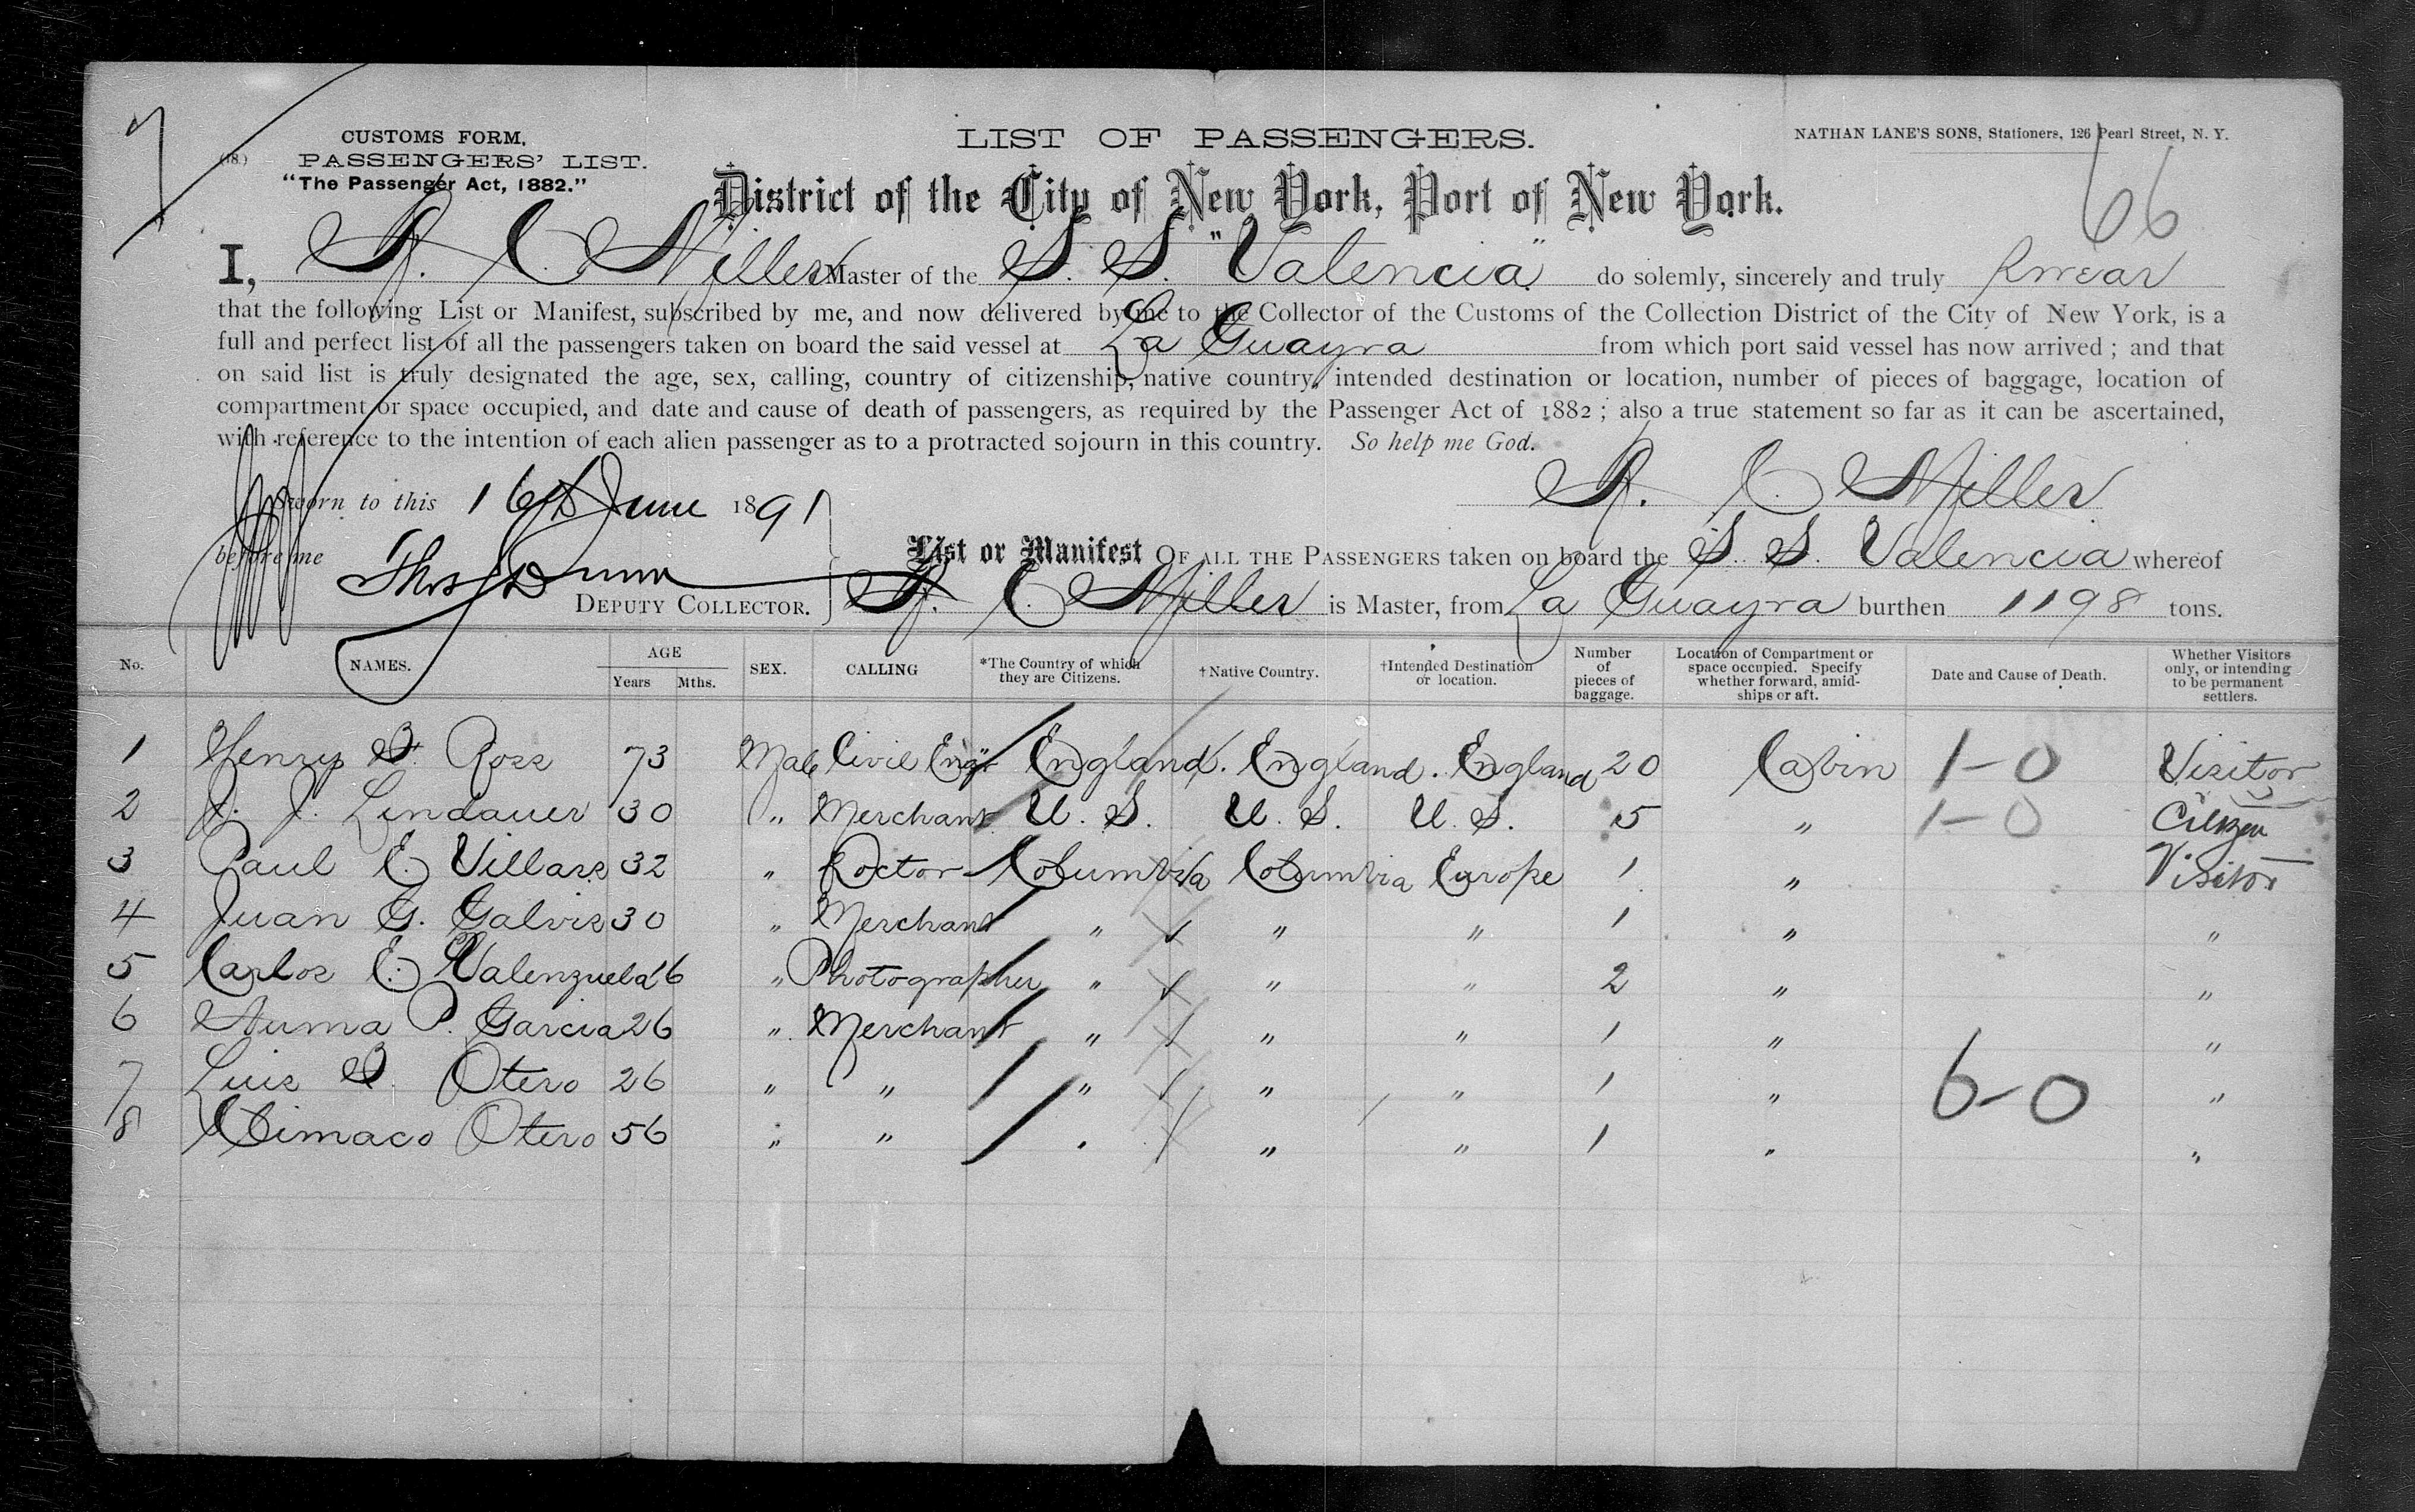 7
CUSTOMS FORM,
(18.) PASSENGERS' LIST.
"The Passenger Act, 1882."
LIST OF PASSENGERS.
NATHAN LANE'S SONS, Stationers, 126 Pearl Street, N. Y.
66
District of the City of New York, Port of New York.
I, Miller Master of the S. S. "Valencia" do solemly, sincerely and truly swear
that the following List or Manifest, subscribed by me, and now delivered by me to the Collector of the Customs of the Collection District of the City of New York, is a
full and perfect list of all the passengers taken on board the said vessel at La Guayra from which port said vessel has now arrived ; and that
on said list is truly designated the age, sex, calling, country of citizenship, native country, intended destination or location, number of pieces of baggage, location of
compartment or space occupied, and date and cause of death of passengers, as required by the Passenger Act of 1882 ; also a true statement so far as it can be ascertained,
with reference to the intention of each alien passenger as to a protracted sojourn in this country. So help me God.
Miller
Sworn to this 16th June 1891
before me Dunn
DEPUTY COLLECTOR.
List or Manifest OF ALL THE PASSENGERS taken on board the S. S. Valencia whereof
Miller is Master, from La Guayra burthen 1198 tons.
No. NAMES. AGE Years Mths. SEX. CALLING *The Country of which they are Citizens. †Native Country. †Intended Destination or location. Number of pieces of baggage. Location of Compartment or space occupied. Specify whether forward, amidships or aft. Date and Cause of Death. Whether Visitors only, or intending to be permanent settlers.
1 Henry Ross 73 Male Civil Engr England. England. England 20 Cabin 1-0 Visitor
2 J. J. Lindauer 30 " Merchant U. S. U. S. U. S. 5 " 1-0 Citizen
3 Paul E. Villars 32 " Doctor Columbia Columbia Europe 1 " Visitor
4 Juan G. Galvis 30 " Merchant " " " 1 " "
5 Carlos E. Valenzuela 26 " Photographer " " " 2 " "
6 Numa P. Garcia 26 " Merchant " " " 1 " "
7 Luis Otero 26 " " " " " 1 " 6-0 "
8 Climaco Otero 56 " " " " " 1 " "